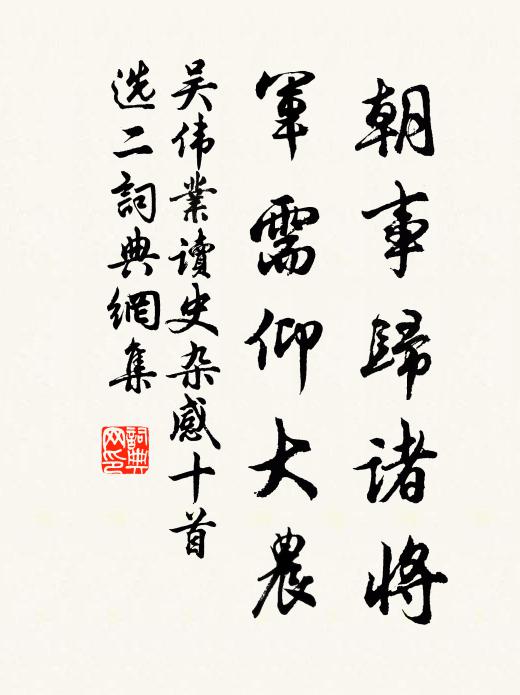 朝事歸诸將
軍需仰大農
吴伟業讀史杂感十首
选二詞典網集
詞典网印